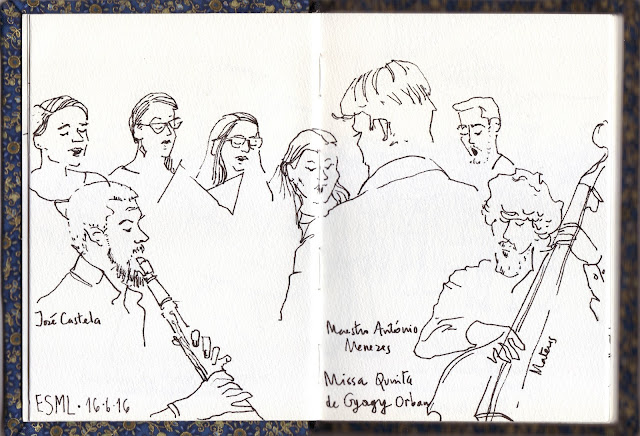 José Castela
ESML · 16·6·16
Maestro António
Menezes
Missa Quinta
de Gyogy Orban
Mateus